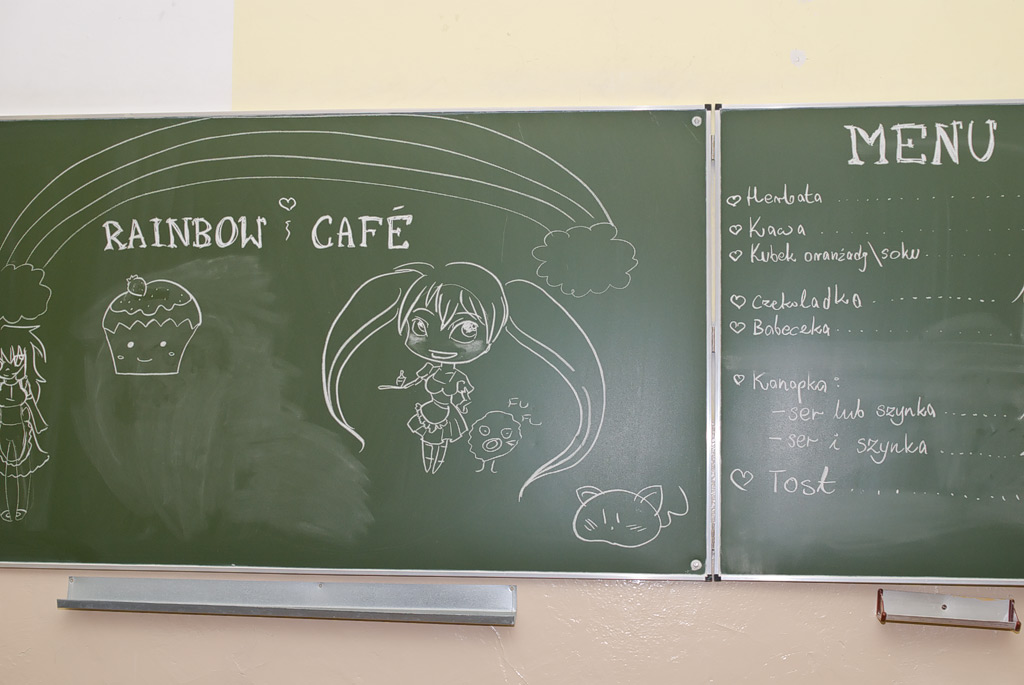 RAINBOW CAFÉ
FU
FU
MENU
Herbata
Kawa
Kubek oranżady\soku
Czekoladka
Babeczka
Kanapka:
-ser lub szynka
-ser i szynka
Tost